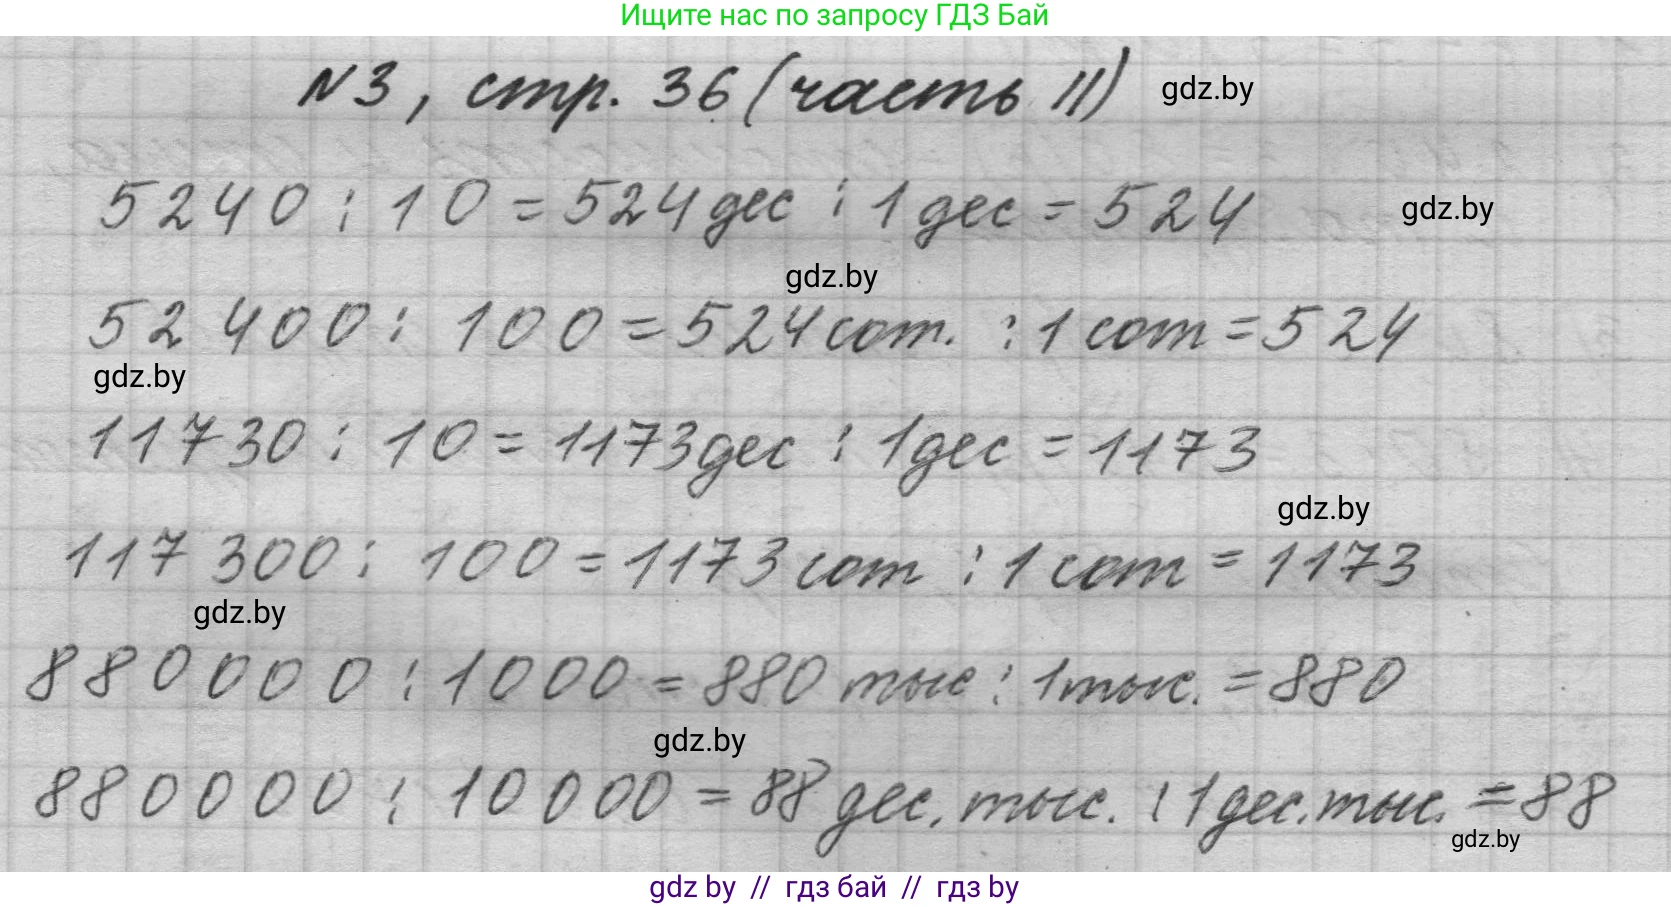 Ищите нас по запросу ГДЗ Бай
N3, стр. 36 (часть II) gdz.by
5240 : 10 = 524 дес : 1 дес = 524 gdz.by
gdz.by
52 400 : 100 = 524 сот. : 1 сот = 524
gdz.by
11730 : 10 = 1173 дес : 1 дес = 1173
gdz.by
117 300 : 100 = 1173 сот : 1 сот = 1173
gdz.by
880000 : 1000 = 880 тыс : 1 тыс. = 880
gdz.by
880000 : 10000 = 88 дес. тыс. : 1 дес. тыс. = 88
gdz.by
gdz by // гдз бай // гдз by